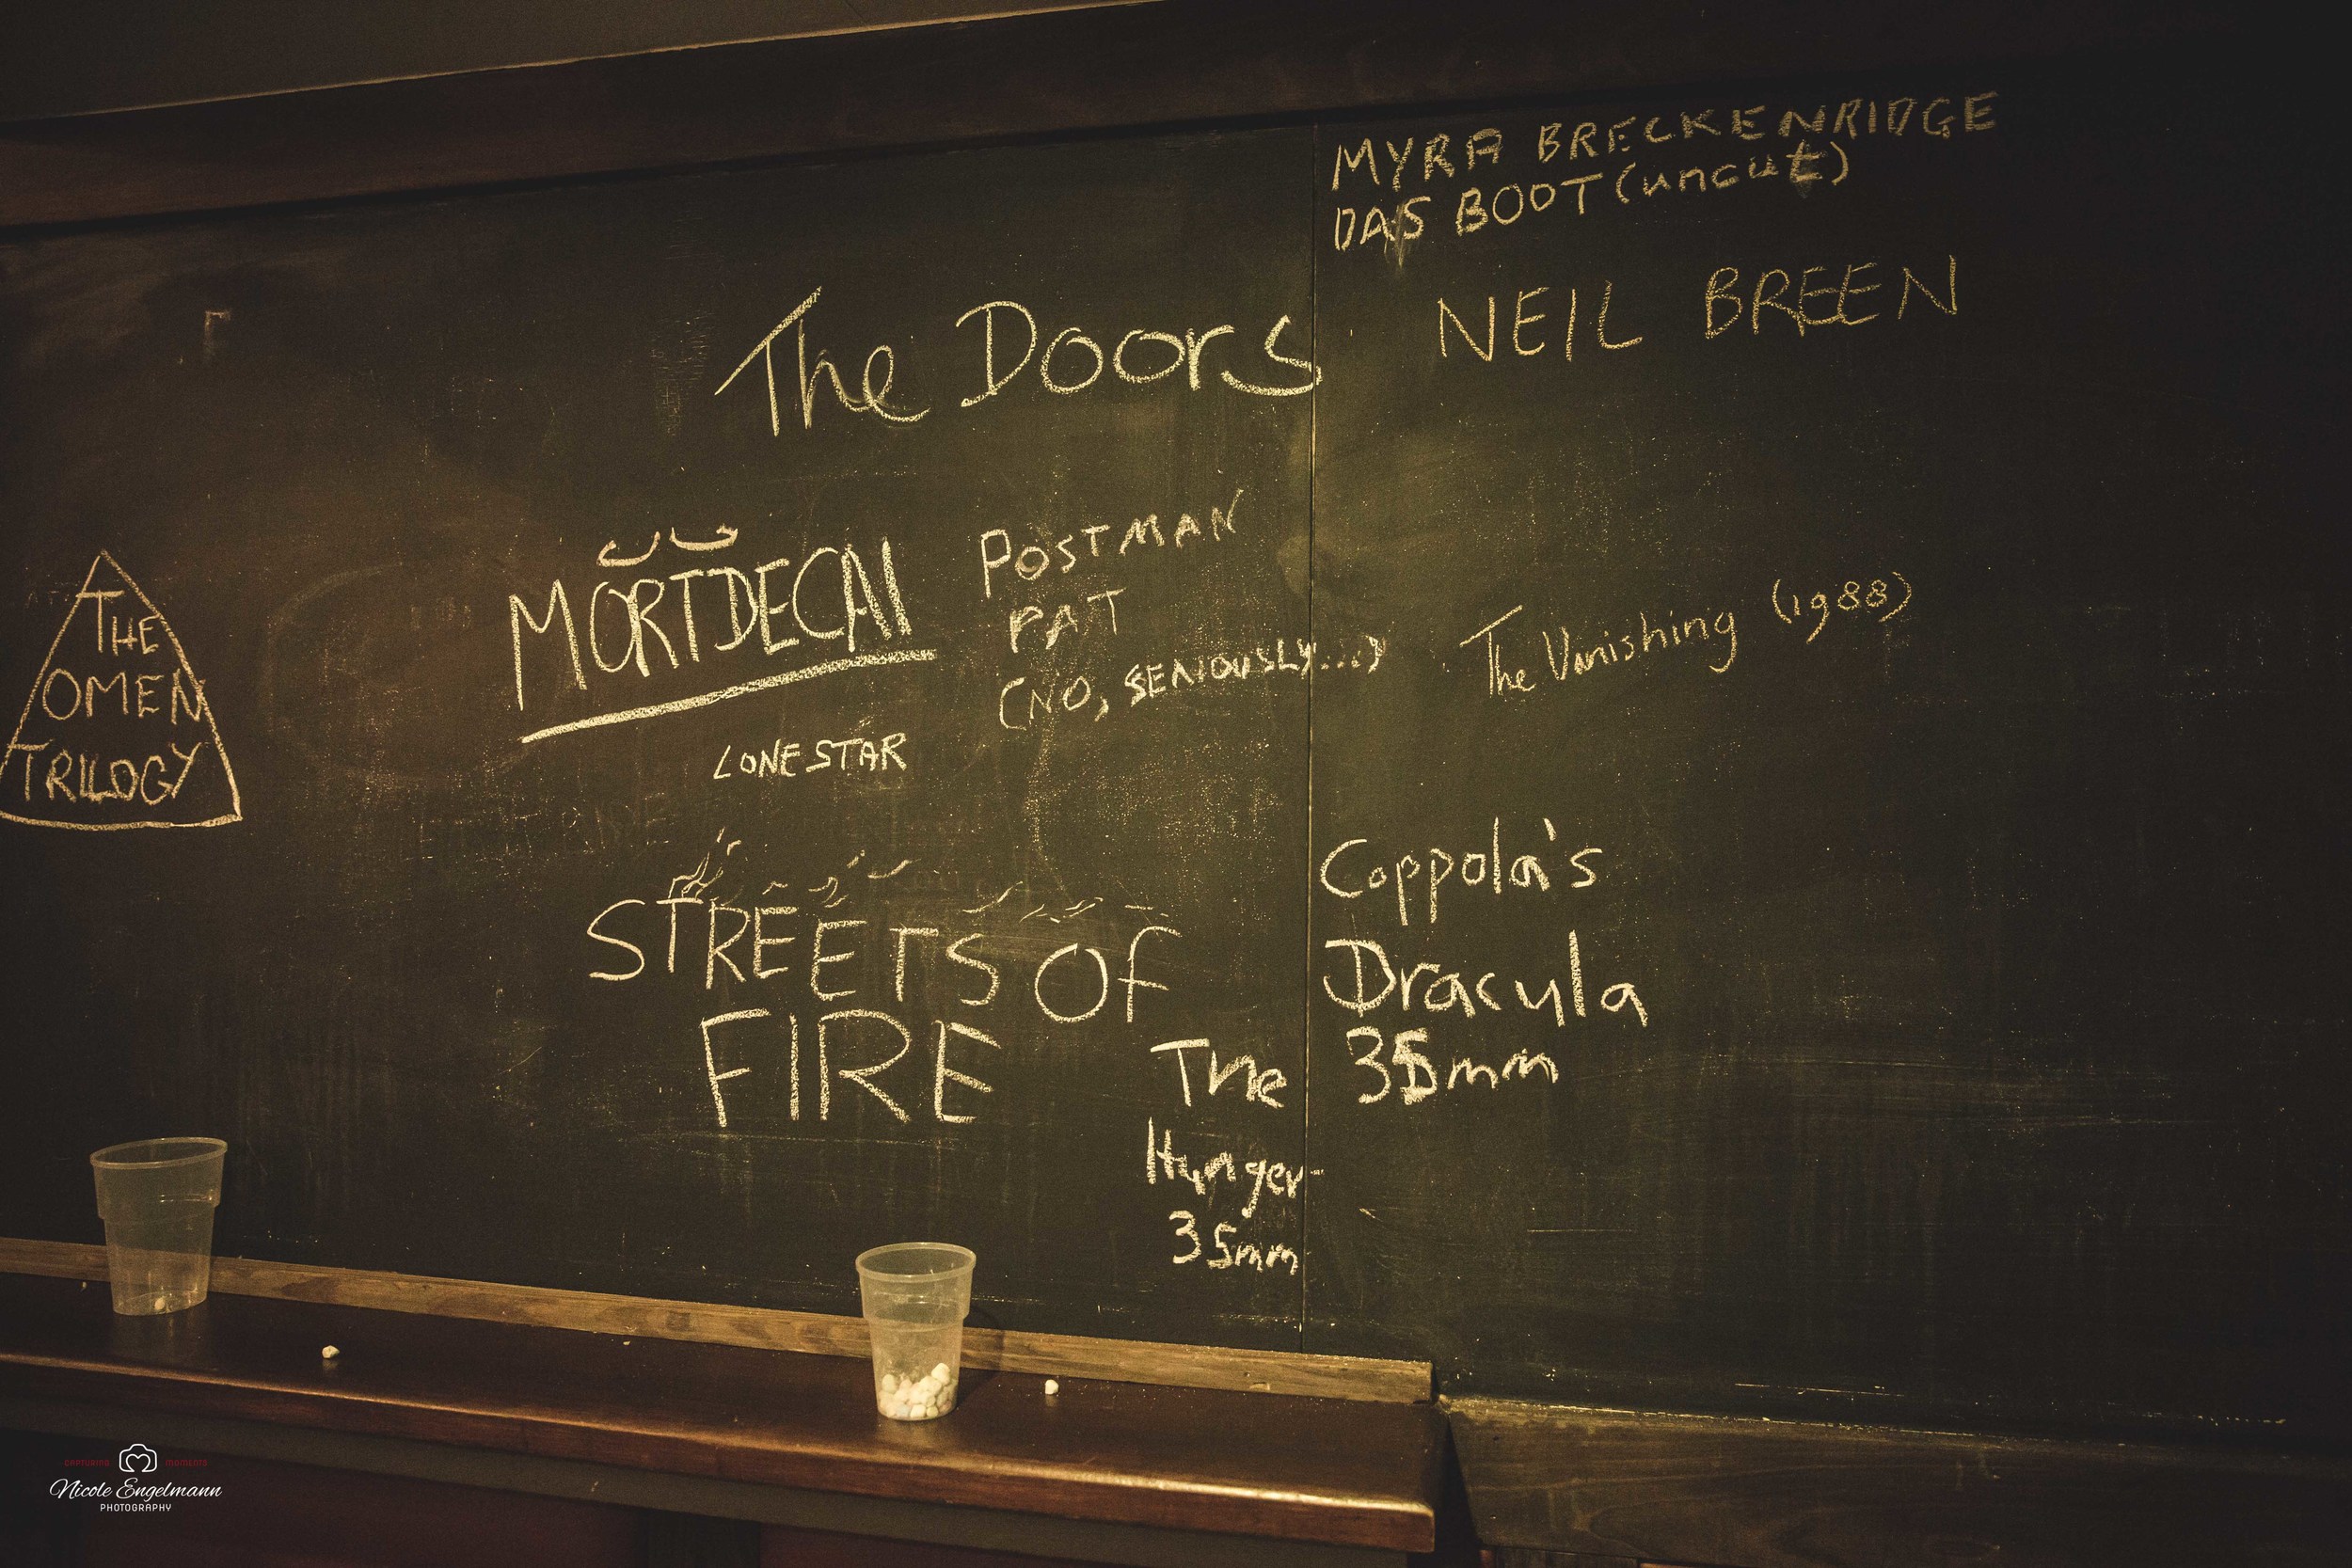 MYRA BRECKENRIDGE
DAS BOOT (uncut)
NEIL BREEN
The Doors
MORTDECAI
POSTMAN
PAT
(NO, SERIOUSLY....)
The Vanishing (1988)
THE
OMEN
TRILOGY
LONESTAR
STREETS OF
FIRE
Coppola's
Dracula
35mm
The
Hunger
35mm
CAPTURING MOMENTS
Nicole Engelmann
PHOTOGRAPHY